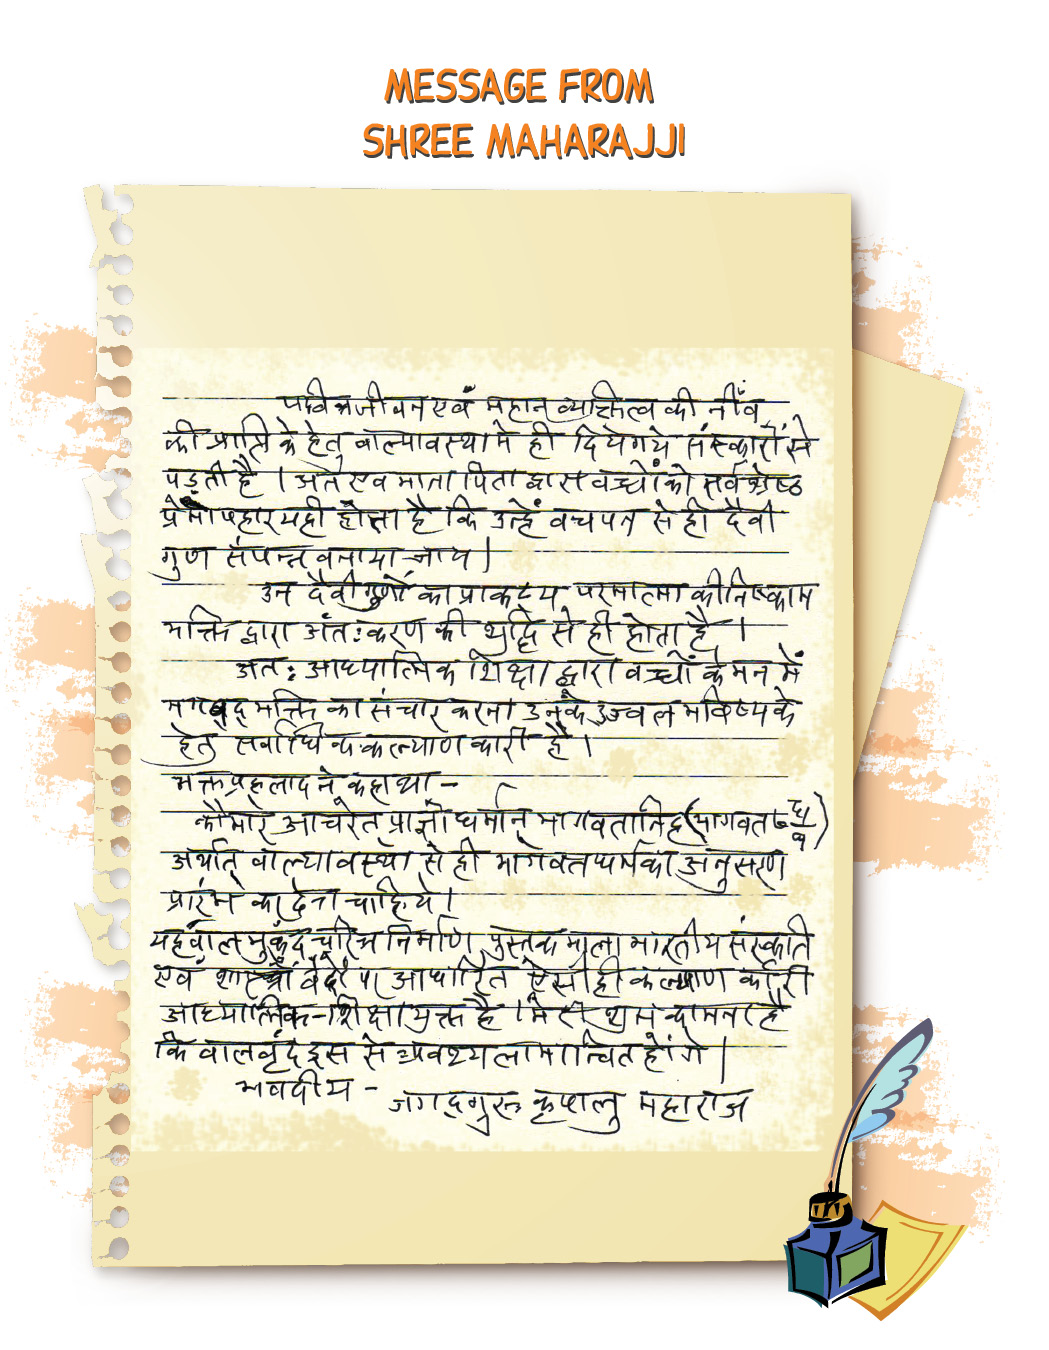 MESSAGE FROM
SHREE MAHARAJJI
पवित्र जीवन एवं महान व्यक्तित्व की नींव
की प्राप्ति के हेतु बाल्यावस्था में ही दिये गये संस्कारों से
पड़ती है । अत एव माता पिता द्वारा बच्चों को सर्वश्रेष्ठ
प्रेमोपहार यही होता है कि उन्हें बचपन से ही दैवी
गुण संपन्न बनाया जाय ।
उन दैवी गुणों का प्राकट्य परमात्मा की निष्काम
भक्ति द्वारा अंतःकरण की शुद्धि से ही होता है ।
अतः आध्यात्मिक शिक्षा द्वारा बच्चों के मन में
भगवद् भक्ति का संचार करना उनके उज्वल भविष्य के
हेतु सर्वाधिक कल्याणकारी है ।
भक्त प्रह्लाद ने कहा था -
कौमारे आचरेत् प्राज्ञो धर्मान् भागवतानिह (भागवत ७
अर्थात् बाल्यावस्था से ही भागवत धर्म का अनुसरण
प्रारंभ कर देना चाहिये ।
यह बाल मुकुंद चरित्र निर्माण पुस्तक माला भारतीय संस्कृति
एवं शास्त्रों वेदों पर आधारित ऐसी ही कल्याणकारी
आध्यात्मिक-शिक्षा युक्त है । मेरी शुभ कामना है
कि बालवृंद इस से अवश्य लाभान्वित होंगे ।
भवदीय -
जगद्गुरु कृपालु महाराज